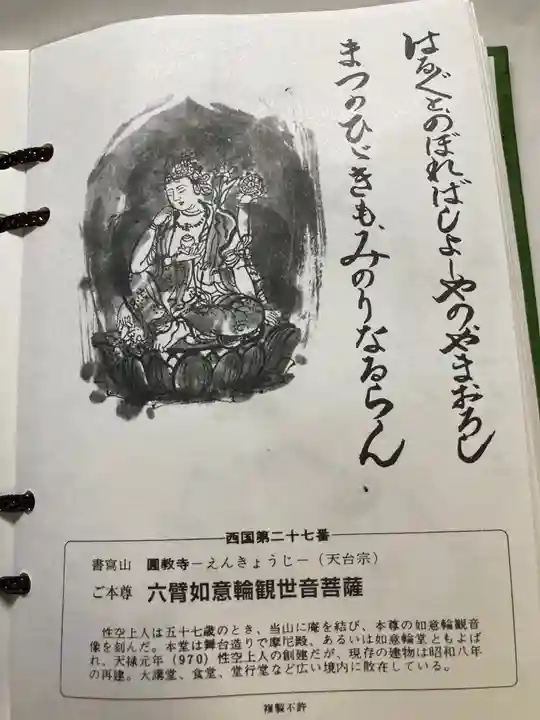 はるばるとのぼればしょーやのやまおろし
まつのひゞきも、みのりなるらん
西国第二十七番
書寫山 圓教寺−えんきょうじ−(天台宗)
ご本尊 六臂如意輪観世音菩薩
性空上人は五十七歳のとき、当山に庵を結び、本尊の如意輪観音
像を刻んだ。本堂は舞台造りで摩尼殿、あるいは如意輪堂ともよば
れ、天禄元年(970)性空上人の創建だが、現存の建物は昭和八年
の再建。大講堂、食堂、堂行堂など広い境内に散在している。
複製不許